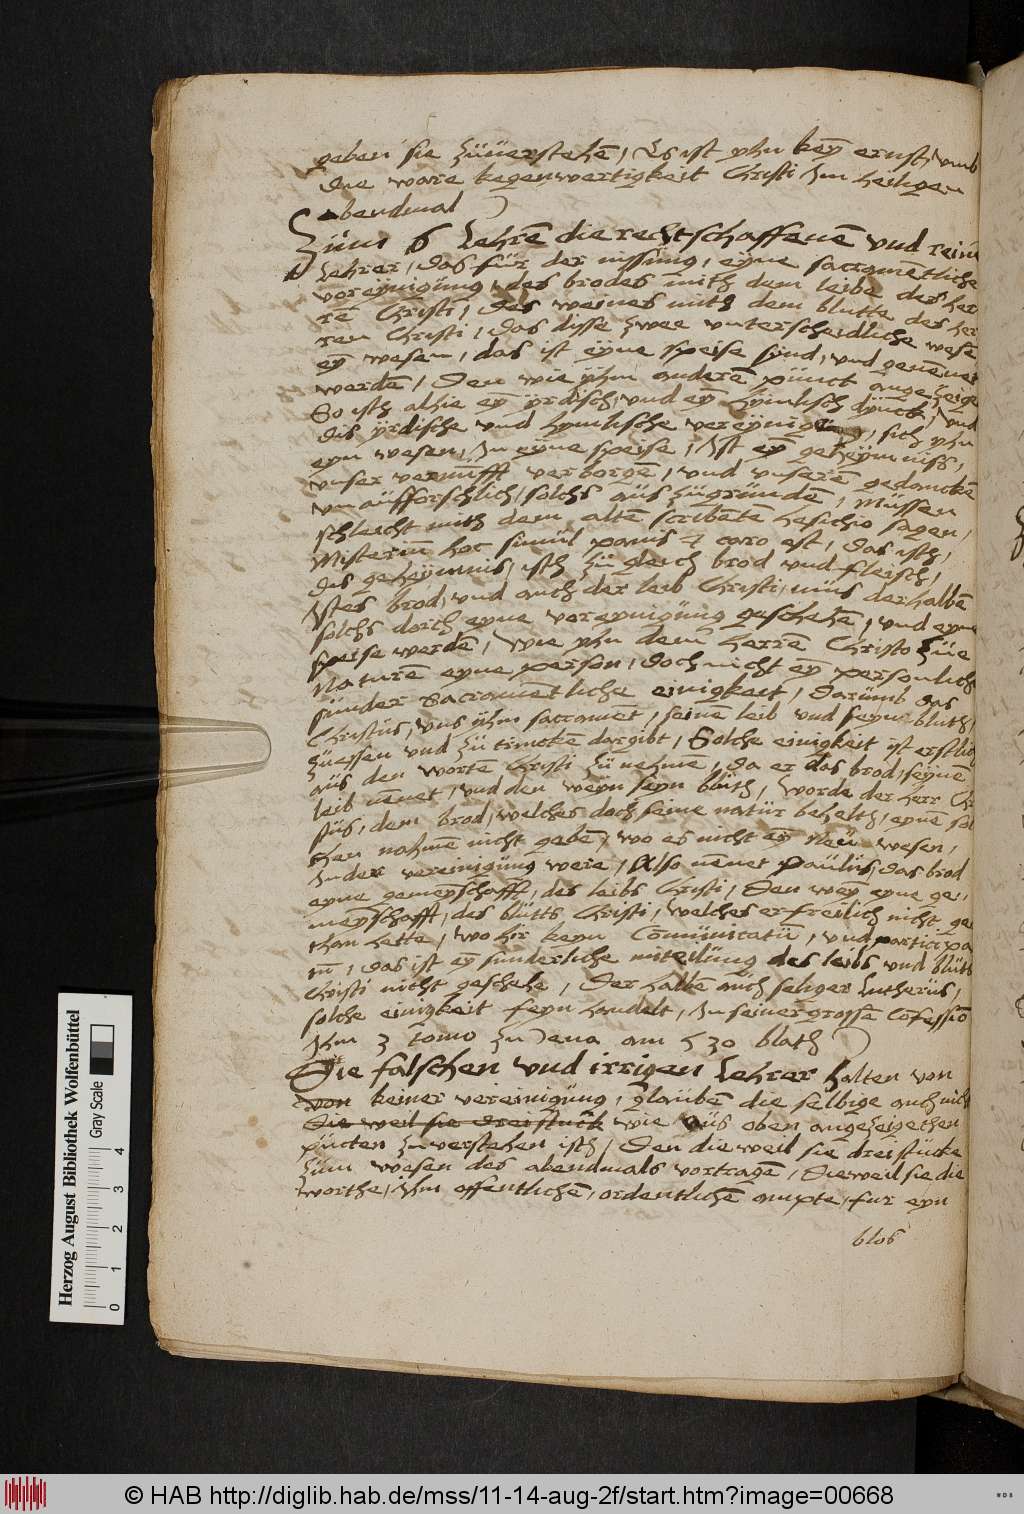 geben sie zuuerstehē, Es ist yhn keȳ ernst, umb
die ware kegenwertigkeit Christi Im heiligen
abendmal
Zum 6 Lehrē die rechtschaffenē und reinē
Lehrer, das für der nissung, eyne sacramētliche
voreynigung, des brodes mith dem leibe des her
rē Christi, des weines mith dem blutte des her
ren Christi, das disse zwee unterscheidliche wesē
eȳ wesen, das ist eyne speise synd, und genēnet
werdē, Den wie yhm anderē punct angezeiget
So isth alhie eȳ yrdisch, und eȳ hymlisch dynck, und
dis yrdische und hymlische vereynigung, sich yhn
eyn wesen, In eyne speise, Ist eȳ geheymniss,
unser vernufft verborgē, und unserē gedanckē
unaufforschlich, solchs aus zugrundē, Mussen
schlecht mith dem altē scribētē Hesichio sagen,
Misteriū hoc simul panis & caro est, das isth,
dis geheymnis, isth zu gleich brod und fleisch,
Ist es brod, und auch der leib Christi, mus derhalbē
solchs dorch eyne voreynigung geschehē, und eyne
speise werdē, wie yhn dem herrē Christo zue
Naturē eyne person, doch nicht eȳ personlich
sunder Sacramētliche einigkeit, darumb das
Christus, uns yhm sacramēt, seinē leib und seyn bluth,
zuessen und zu trinckē dargibt, Solche einigkeit ist erstlich
aus den wortē Christi zu nehmē, da er das brod, seynē
leib nēnet, und den weyn seyn bluth, worde der herr Chri
stus, dem brod, welches doch seine natur behelth, eynē sol
chen nahmē nicht gebē, wo es nicht eȳ Neu wesen,
In der vereinigung were, Also nēnet Paulus, das brod
eyne gemeȳschafft, des leibs Christi, Den weȳ eyne ge,,
meȳschafft, des blutts Christi, welches er freilich nicht ge
than hette, wo hir keyn Cōmunicatū, und participa
tū, das ist eȳ sunderliche miteilung des leibs und blutts
Christi nicht geschehe, Derhalbē auch seliger Lutherus,
solche einigkeit feyn handelt, In seiner grossē Cōfessiō
Ihm 3 tomo zu Jena am 530 blath
Die falschen und irrigen Lehrer halten von
von keiner vereinigung, glaubē die selbige auch nicht
Die weil sie drei stuck wie aus oben angezeigethen
pūcten zu verstehen isth, Den die weil sie drei stucke
zum wesen des abendmals vortragē, Dieweil sie die
worthe, Ihm offentlichē, ordentlichē ampte, fur eyn
blos
Herzog August Bibliothek Wolfenbüttel
Gray Scale
0 1 2 3 4
© HAB http://diglib.hab.de/mss/11-14-aug-2f/start.htm?image=00668
WDB